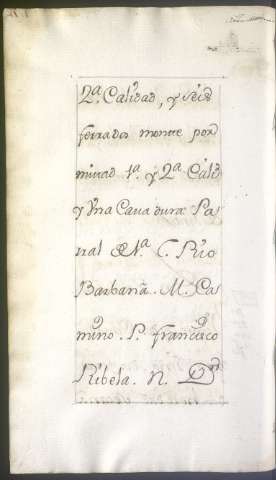 2ª. Calidad, y seis
ferrados monte por
mitad 1ª. y 2ª Calid
y Una Cavadura Pa
rral de 1ª. C. Rio
Barbaña. M. Ca
mino. P. francisco
Ribela. N. Dn